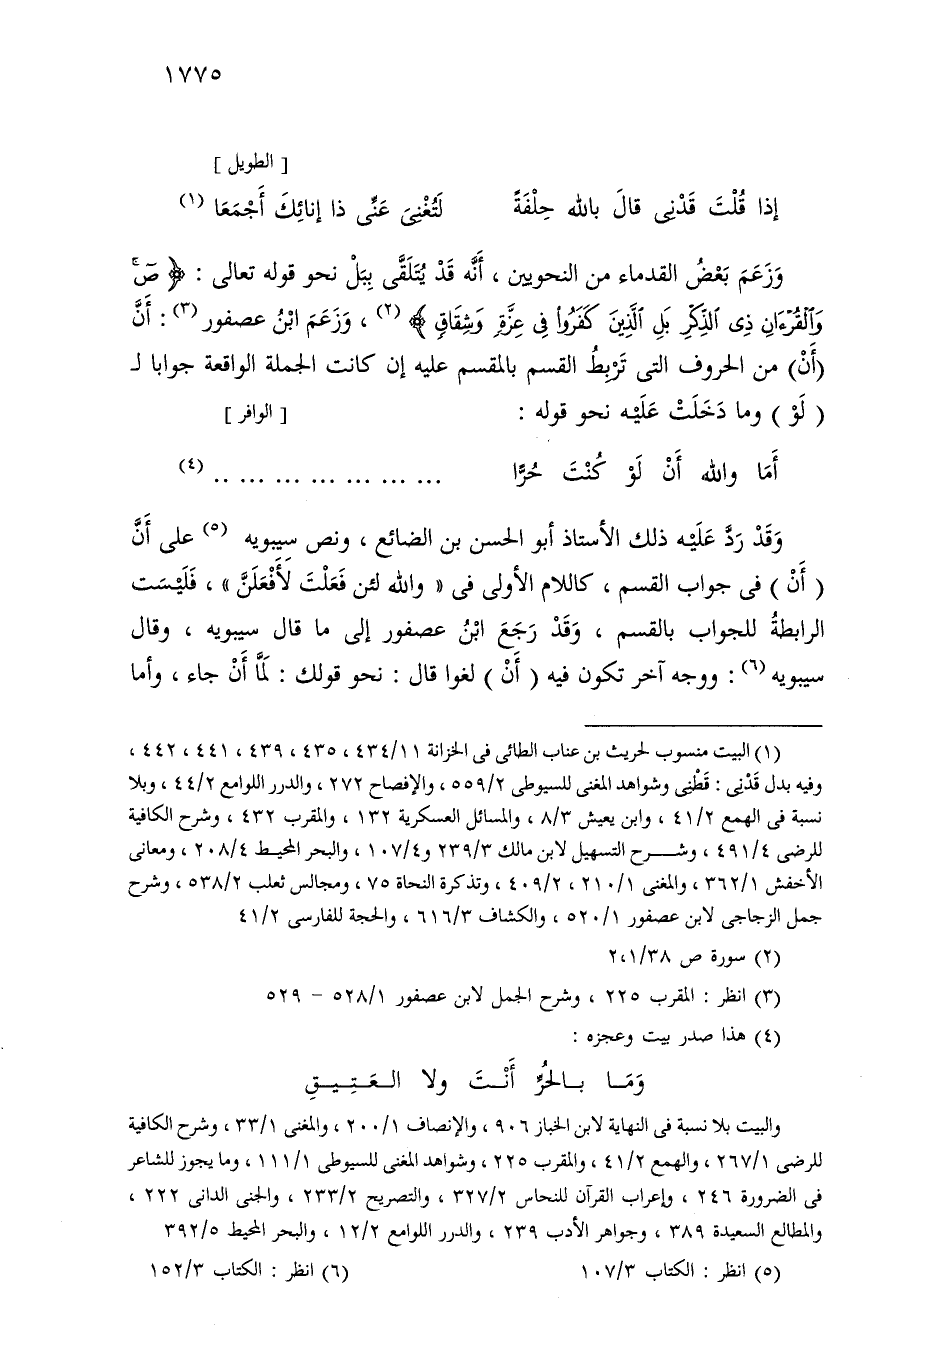 ١٧٧٥
[ الطويل ]
إذا قُلْتَ قَدْنِى قالَ بالله حِلْفَةً لَتُغْنِىَ عَنِّى ذا إنائِكَ أَجْمَعَا (١)
وَزَعَمَ بَعْضُ القدماء من النحويين ، أَنَّه قَدْ يُتَلَقَّى بِبَلْ نحو قوله تعالى : ﴿ صٓۚ
وَٱلْقُرْءَانِ ذِى ٱلذِّكْرِ بَلِ ٱلَّذِينَ كَفَرُوا۟ فِى عِزَّةٍ وَشِقَاقٍ ﴾ (٢) ، وَزَعَمَ ابْنُ عصفور (٣) : أَنَّ
(أَنْ) من الحروف التى تَرْبِطُ القسم بالمقسم عليه إن كانت الجملة الواقعة جوابا لـ
( لَوْ ) وما دَخَلَتْ عَلَيْه نحو قوله : [ الوافر ]
أَمَا والله أَنْ لَوْ كُنْتَ حُرًّا ... ... ... ... ... ... .. (٤)
وَقَدْ رَدَّ عَلَيْه ذلك الأستاذ أبو الحسن بن الضائع ، ونص سيبويه (٥) على أَنَّ
( أَنْ ) فى جواب القسم ، كاللام الأولى فى « والله لئن فَعَلْتَ لَأَفْعَلَنَّ » ، فَلَيْسَت
الرابطةُ للجواب بالقسم ، وَقَدْ رَجَعَ ابْنُ عصفور إلى ما قال سيبويه ، وقال
سيبويه (٦) : ووجه آخر تكون فيه ( أَنْ ) لغوا قال : نحو قولك : لَمَّا أَنْ جاء ، وأما
(١) البيت منسوب لحريث بن عناب الطائى فى الخزانة ٤٣٤/١١ ، ٤٣٥ ، ٤٣٩ ، ٤٤١ ، ٤٤٢ ،
وفيه بدل قَدْنِى : قَطْنِى وشواهد المغنى للسيوطى ٥٥٩/٢ ، والإفصاح ٢٧٢ ، والدرر اللوامع ٤٤/٢ ، وبلا
نسبة فى الهمع ٤١/٢ ، وابن يعيش ٨/٣ ، والمسائل العسكرية ١٣٢ ، والمقرب ٤٣٢ ، وشرح الكافية
للرضى ٤٩١/٤ ، وشـــرح التسهيل لابن مالك ٢٣٩/٣ و١٠٧/٤ ، والبحر المحيط ٢٠٨/٤ ، ومعانى
الأخفش ٣٦٢/١ ، والمغنى ٢١٠/١ ، ٤٠٩/٢ ، وتذكرة النحاة ٧٥ ، ومجالس ثعلب ٥٣٨/٢ ، وشرح
جمل الزجاجى لابن عصفور ٥٢٠/١ ، والكشاف ٦١٦/٣ ، والحجة للفارسى ٤١/٢
(٢) سورة ص ٢،١/٣٨
(٣) انظر : المقرب ٢٢٥ ، وشرح الجمل لابن عصفور ٥٢٨/١ – ٥٢٩
(٤) هذا صدر بيت وعجزه :
وَمَـا بـالحُرِّ أَنْـتَ ولا الـعَـتِـيـقِ
والبيت بلا نسبة فى النهاية لابن الخباز ٩٠٦ ، والإنصاف ٢٠٠/١ ، والمغنى ٣٣/١ ، وشرح الكافية
للرضى ٢٦٧/١ ، والهمع ٤١/٢ ، والمقرب ٢٢٥ ، وشواهد المغنى للسيوطى ١١١/١ ، وما يجوز للشاعر
فى الضرورة ٢٤٦ ، وإعراب القرآن للنحاس ٣٢٧/٢ ، والتصريح ٢٣٣/٢ ، والجنى الدانى ٢٢٢ ،
والمطالع السعيدة ٣٨٩ ، وجواهر الأدب ٢٣٩ ، والدرر اللوامع ١٢/٢ ، والبحر المحيط ٣٩٢/٥
(٥) انظر : الكتاب ١٠٧/٣ (٦) انظر : الكتاب ١٥٢/٣